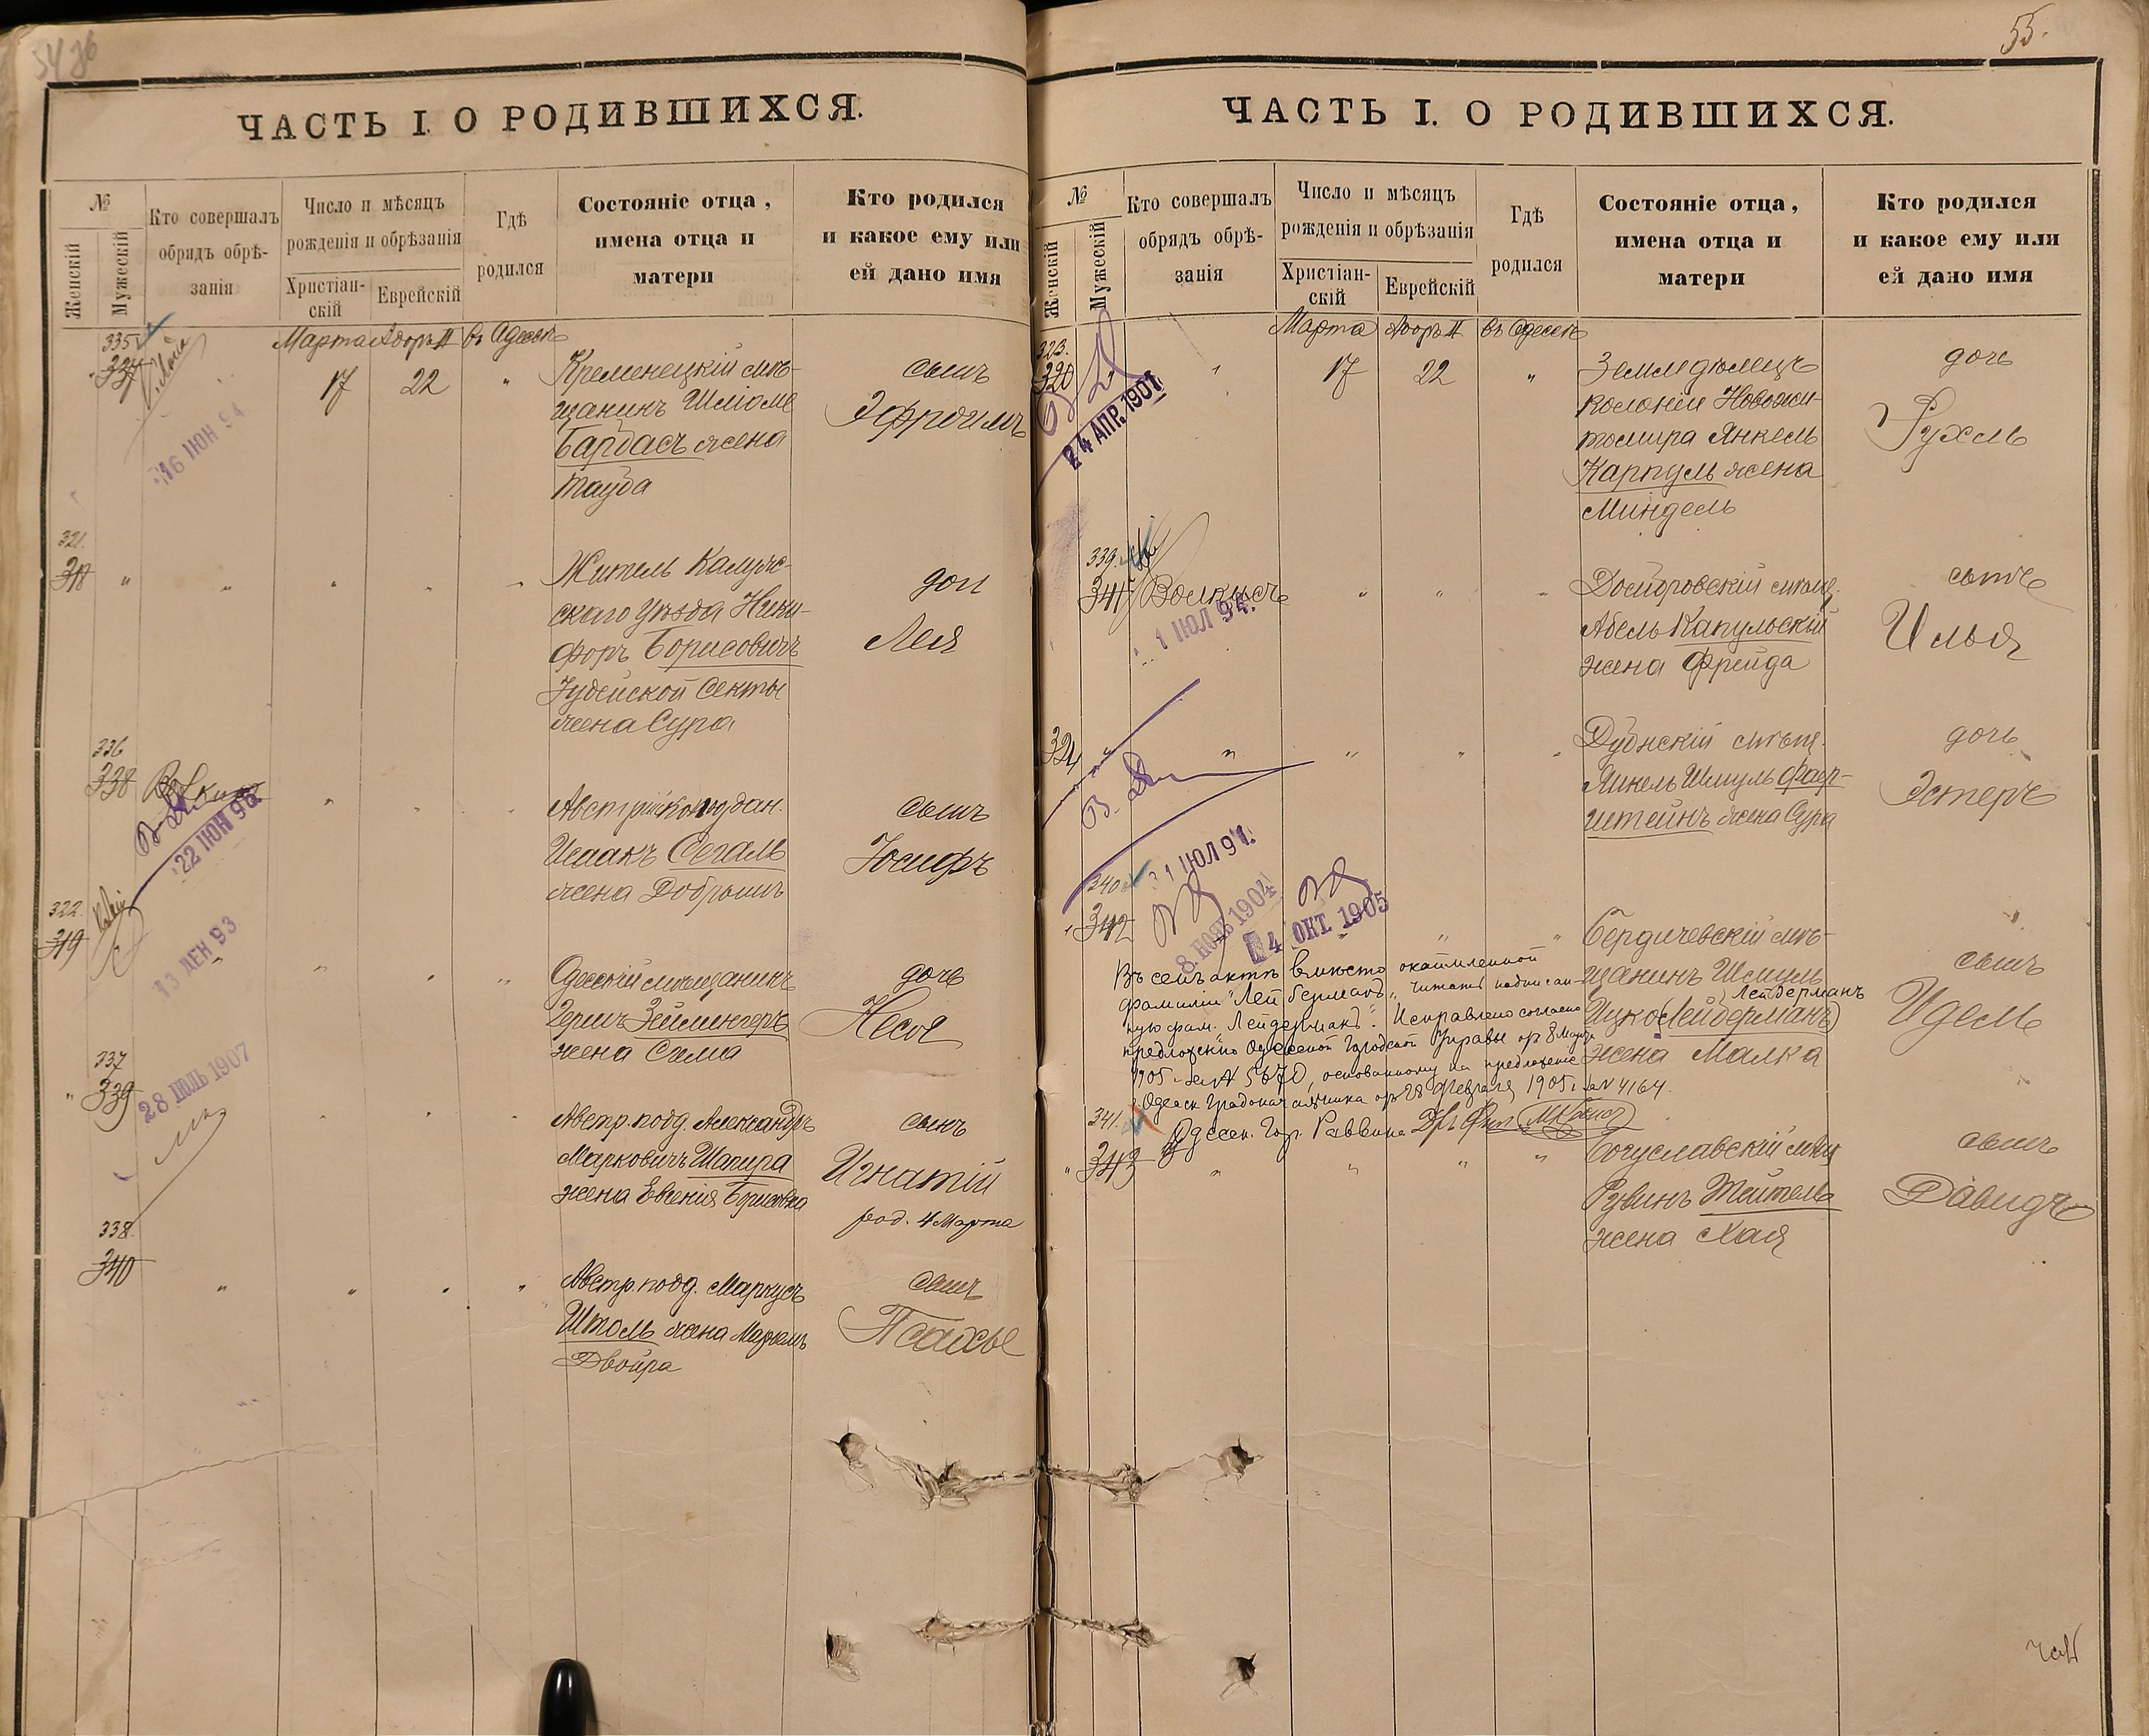 ЧАСТЬ I. О РОДИВШИХСЯ.
№
Женскій
Мужескій
Кто совершалъ
обрядъ обрѣ-
занія
Число и мѣсяцъ
рожденія и обрѣзанія
Христіан-
скій
Еврейскій
Гдѣ
родился
Состояніе отца,
имена отца и
матери
Кто родился
и какое ему или
ей дано имя
335
337
Марта Адоръ II въ Одессѣ
17 22 "
Кременецкій мѣ-
щанинъ Шліоме
Барбасъ жена
Тауба
сынъ
Эфроимъ
16 ІЮН 94
321.
318
Житель Калуж-
скаго уѣзда Ники-
форъ Борисовичъ
Іудейской секты
жена Сура
доч
Лея
336
338
22 ІЮН 96
Австрійск. поддан.
Исаакъ Сегаль
жена Добрышъ
сынъ
Іосифъ
322.
319
13 ДЕН 93
Одесскій мѣщанинъ
Гершъ Зейлингеръ
жена Сима
дочь
Неся
337
339
28 ІЮЛЬ 1907
Австр. подд. Александръ
Марковичъ Шапира
жена Евгенія Борисовна
сынъ
Игнатій
род. 4 Марта
338.
340
Австр. подд. Маркусъ
Штоль жена Маріемъ
Двойра
сынъ
Псахье
55.
ЧАСТЬ I. О РОДИВШИХСЯ.
№
Женскій
Мужескій
Кто совершалъ
обрядъ обрѣ-
занія
Число и мѣсяцъ
рожденія и обрѣзанія
Христіан-
скій
Еврейскій
Гдѣ
родился
Состояніе отца,
имена отца и
матери
Кто родился
и какое ему или
ей дано имя
323.
320
24 АПР. 1907
Марта Адоръ II въ Одессѣ
17 22 "
Земледѣлецъ
колоніи Новожи-
томира Янкель
Карпуль жена
Миндель
дочь
Рухль
339.
341
Волкисъ
1 ІЮЛ 94.
Абель Капульскій
жена Фрейда
сынъ
Илья
324
Дубнскій мѣщ.
Янкель Шмуль Фаер-
штейнъ жена Сура
дочь
Эстеръ
340
342
31 ІЮЛ 94.
8. НОЯБ 1904
4 ОКТ. 1905
Бердичевскій мѣ-
щанинъ Шмиль
Лейдерманъ
Ицко (Лейберманъ)
жена Малка
сынъ
Идель
Въ семъ актѣ вмѣсто окаймленной
фамиліи "Лейберманъ" читать надписан-
ную фам. "Лейдерманъ". Исправлено согласно
предложенію Одесской Городской Управы от 8 Марта
1905 г. за № 5670, основанному на предложеніе
Одесск. Градоначальника от 28 Февраля 1905 г. за № 4164.
Одесск. Гор. Раввинъ
341.
343
Богуславскій мѣщ.
Рувинъ Тейтель
жена Хая
сынъ
Давидъ